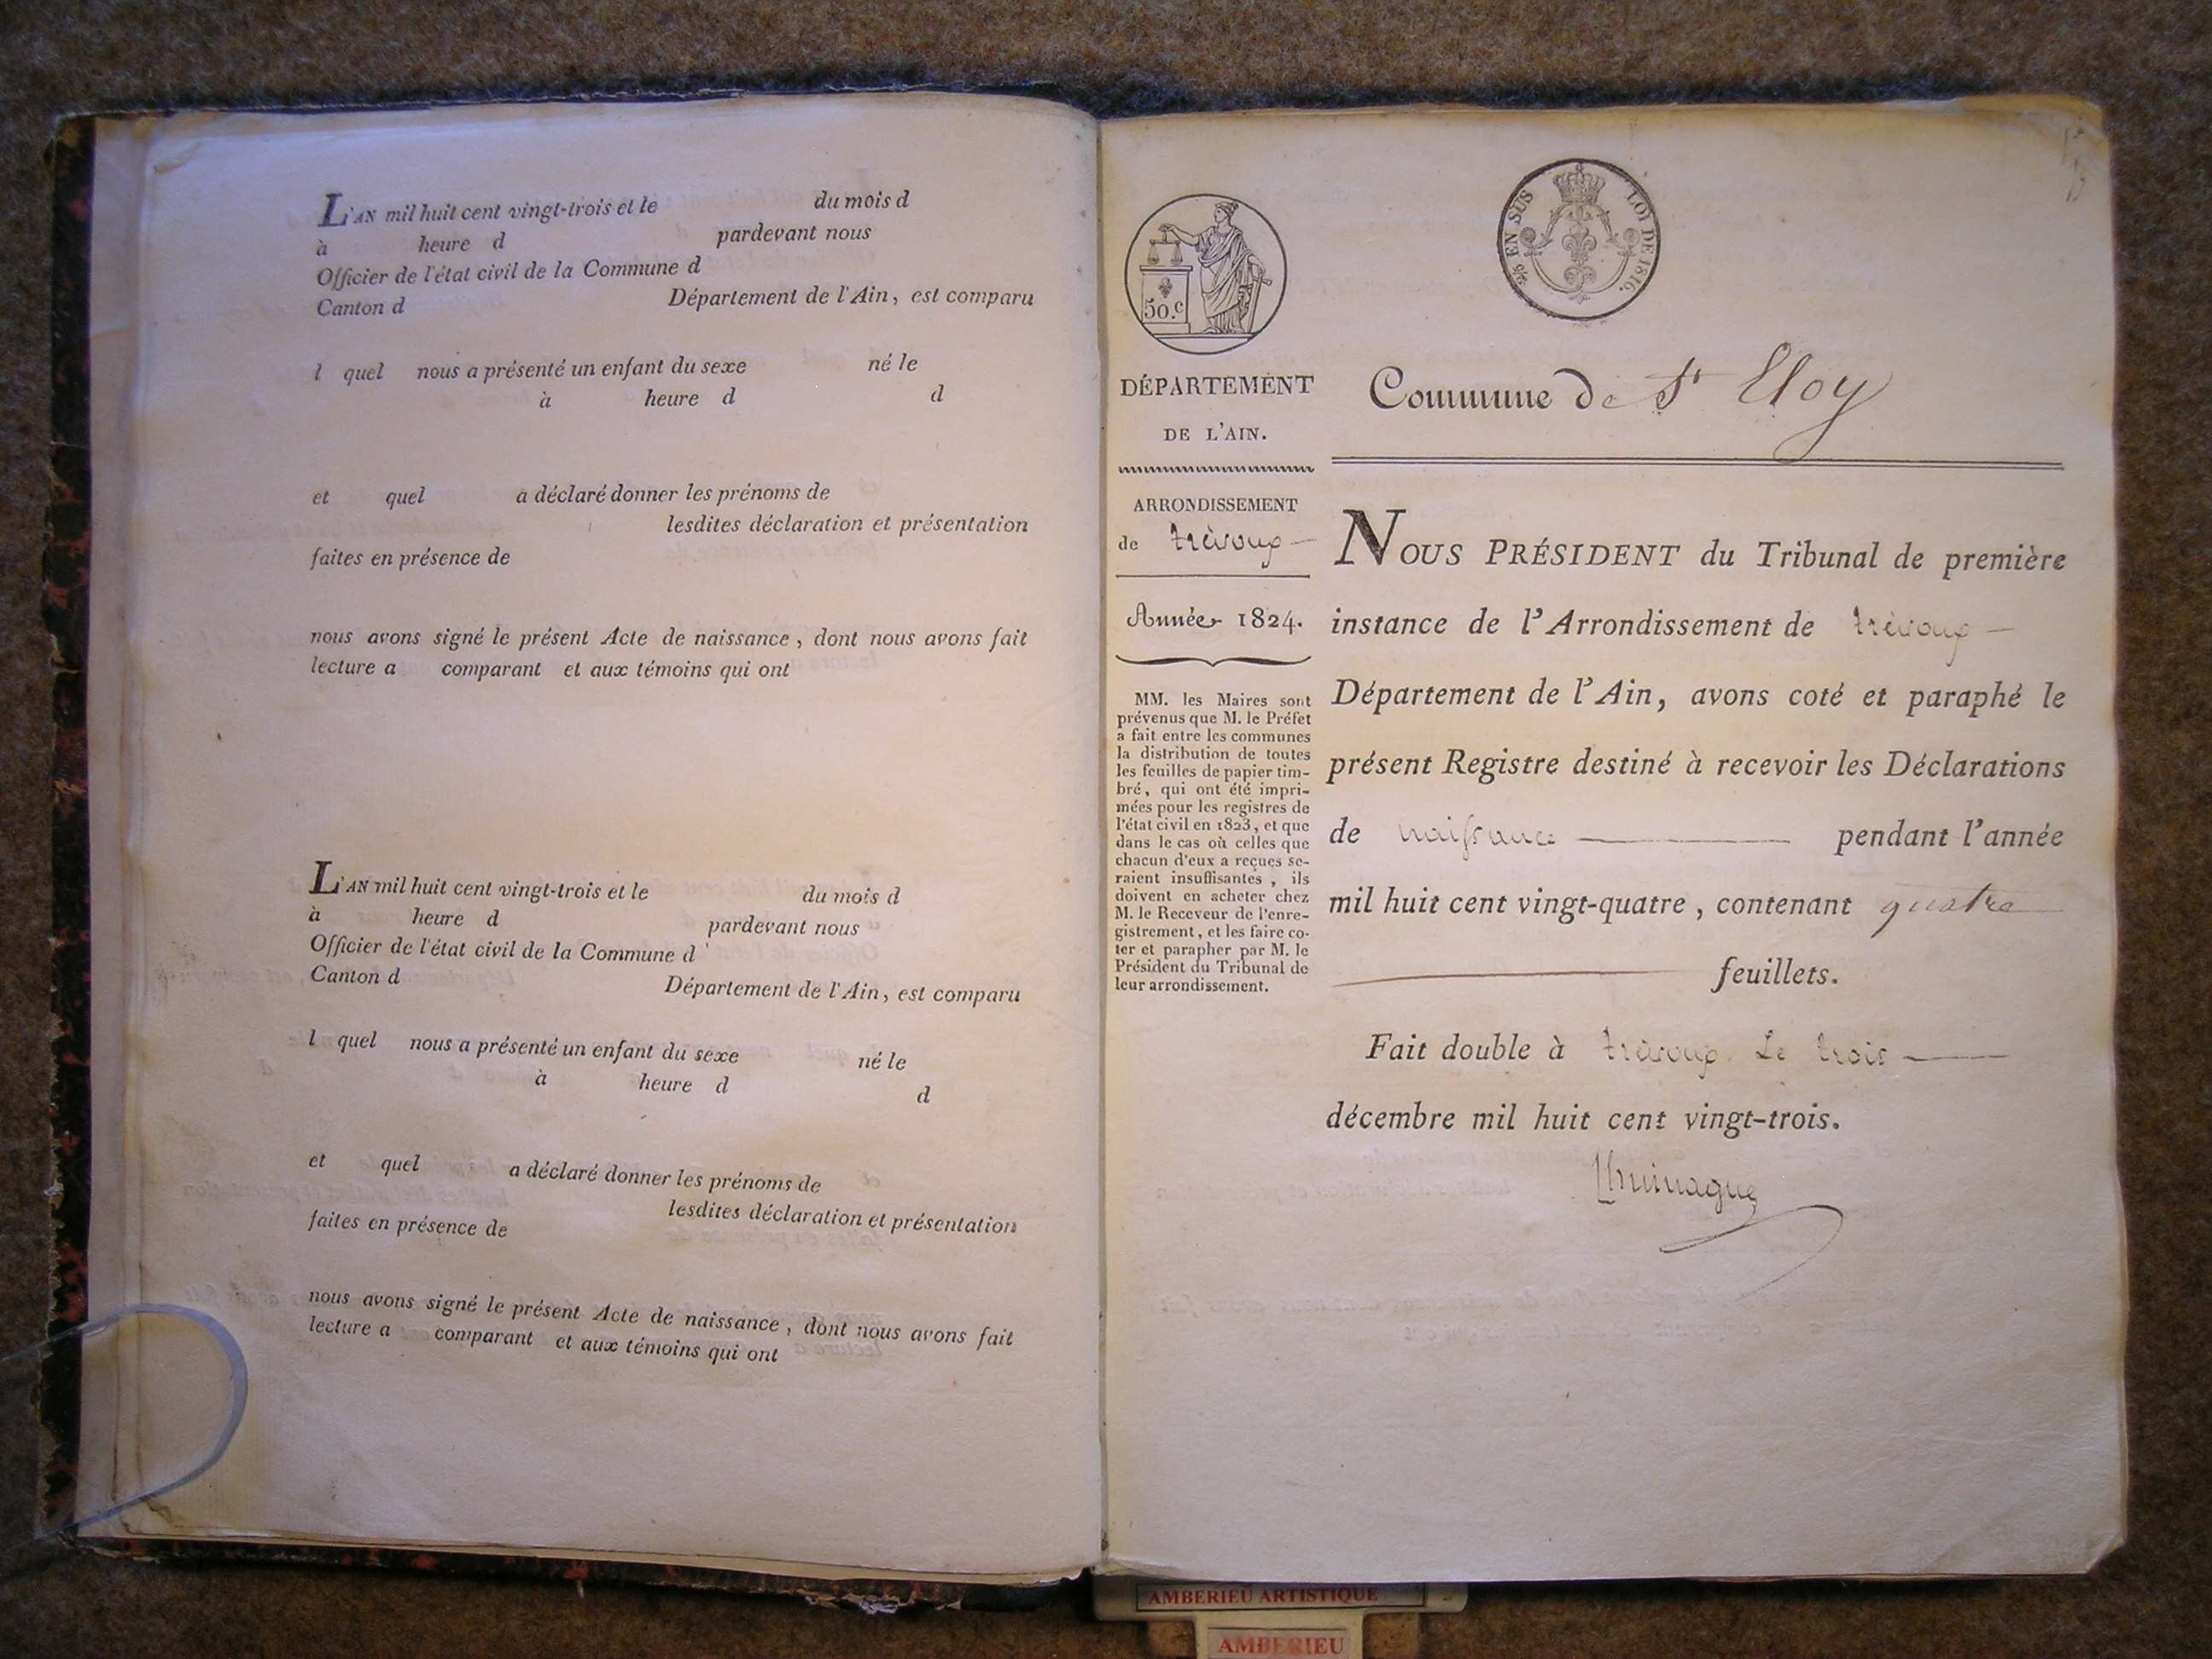 L'AN mil huit cent vingt-trois et le du mois d
à heure d pardevant nous
Officier de l'état civil de la Commune d
Canton d Département de l'Ain, est comparu
l quel nous a présenté un enfant du sexe né le
à heure d d
et quel a déclaré donner les prénoms de
lesdites déclaration et présentation
faites en présence de
nous avons signé le présent Acte de naissance, dont nous avons fait
lecture a comparant et aux témoins qui ont
L'AN mil huit cent vingt-trois et le du mois d
à heure d pardevant nous
Officier de l'état civil de la Commune d
Canton d Département de l'Ain, est comparu
l quel nous a présenté un enfant du sexe né le
à heure d d
et quel a déclaré donner les prénoms de
lesdites déclaration et présentation
faites en présence de
nous avons signé le présent Acte de naissance, dont nous avons fait
lecture a comparant et aux témoins qui ont
50.c
EN SUS LOI DE 1816.
DÉPARTEMENT
DE L'AIN.
ARRONDISSEMENT
de trévoux
Année 1824.
MM. les Maires sont
prévenus que M. le Préfet
a fait entre les communes
la distribution de toutes
les feuilles de papier tim-
bré, qui ont été impri-
mées pour les registres de
l'état civil en 1823, et que
dans le cas où celles que
chacun d'eux a reçues se-
raient insuffisantes, ils
doivent en acheter chez
M. le Receveur de l'enre-
gistrement, et les faire co-
ter et parapher par M. le
Président du Tribunal de
leur arrondissement.
Commune de St Eloy
NOUS PRÉSIDENT du Tribunal de première
instance de l'Arrondissement de trévoux
Département de l'Ain, avons coté et paraphé le
présent Registre destiné à recevoir les Déclarations
de naissance pendant l'année
mil huit cent vingt-quatre, contenant quatre
feuillets.
Fait double à trévoux Le trois
décembre mil huit cent vingt-trois.
AMBERIEU ARTISTIQUE
AMBERIEU